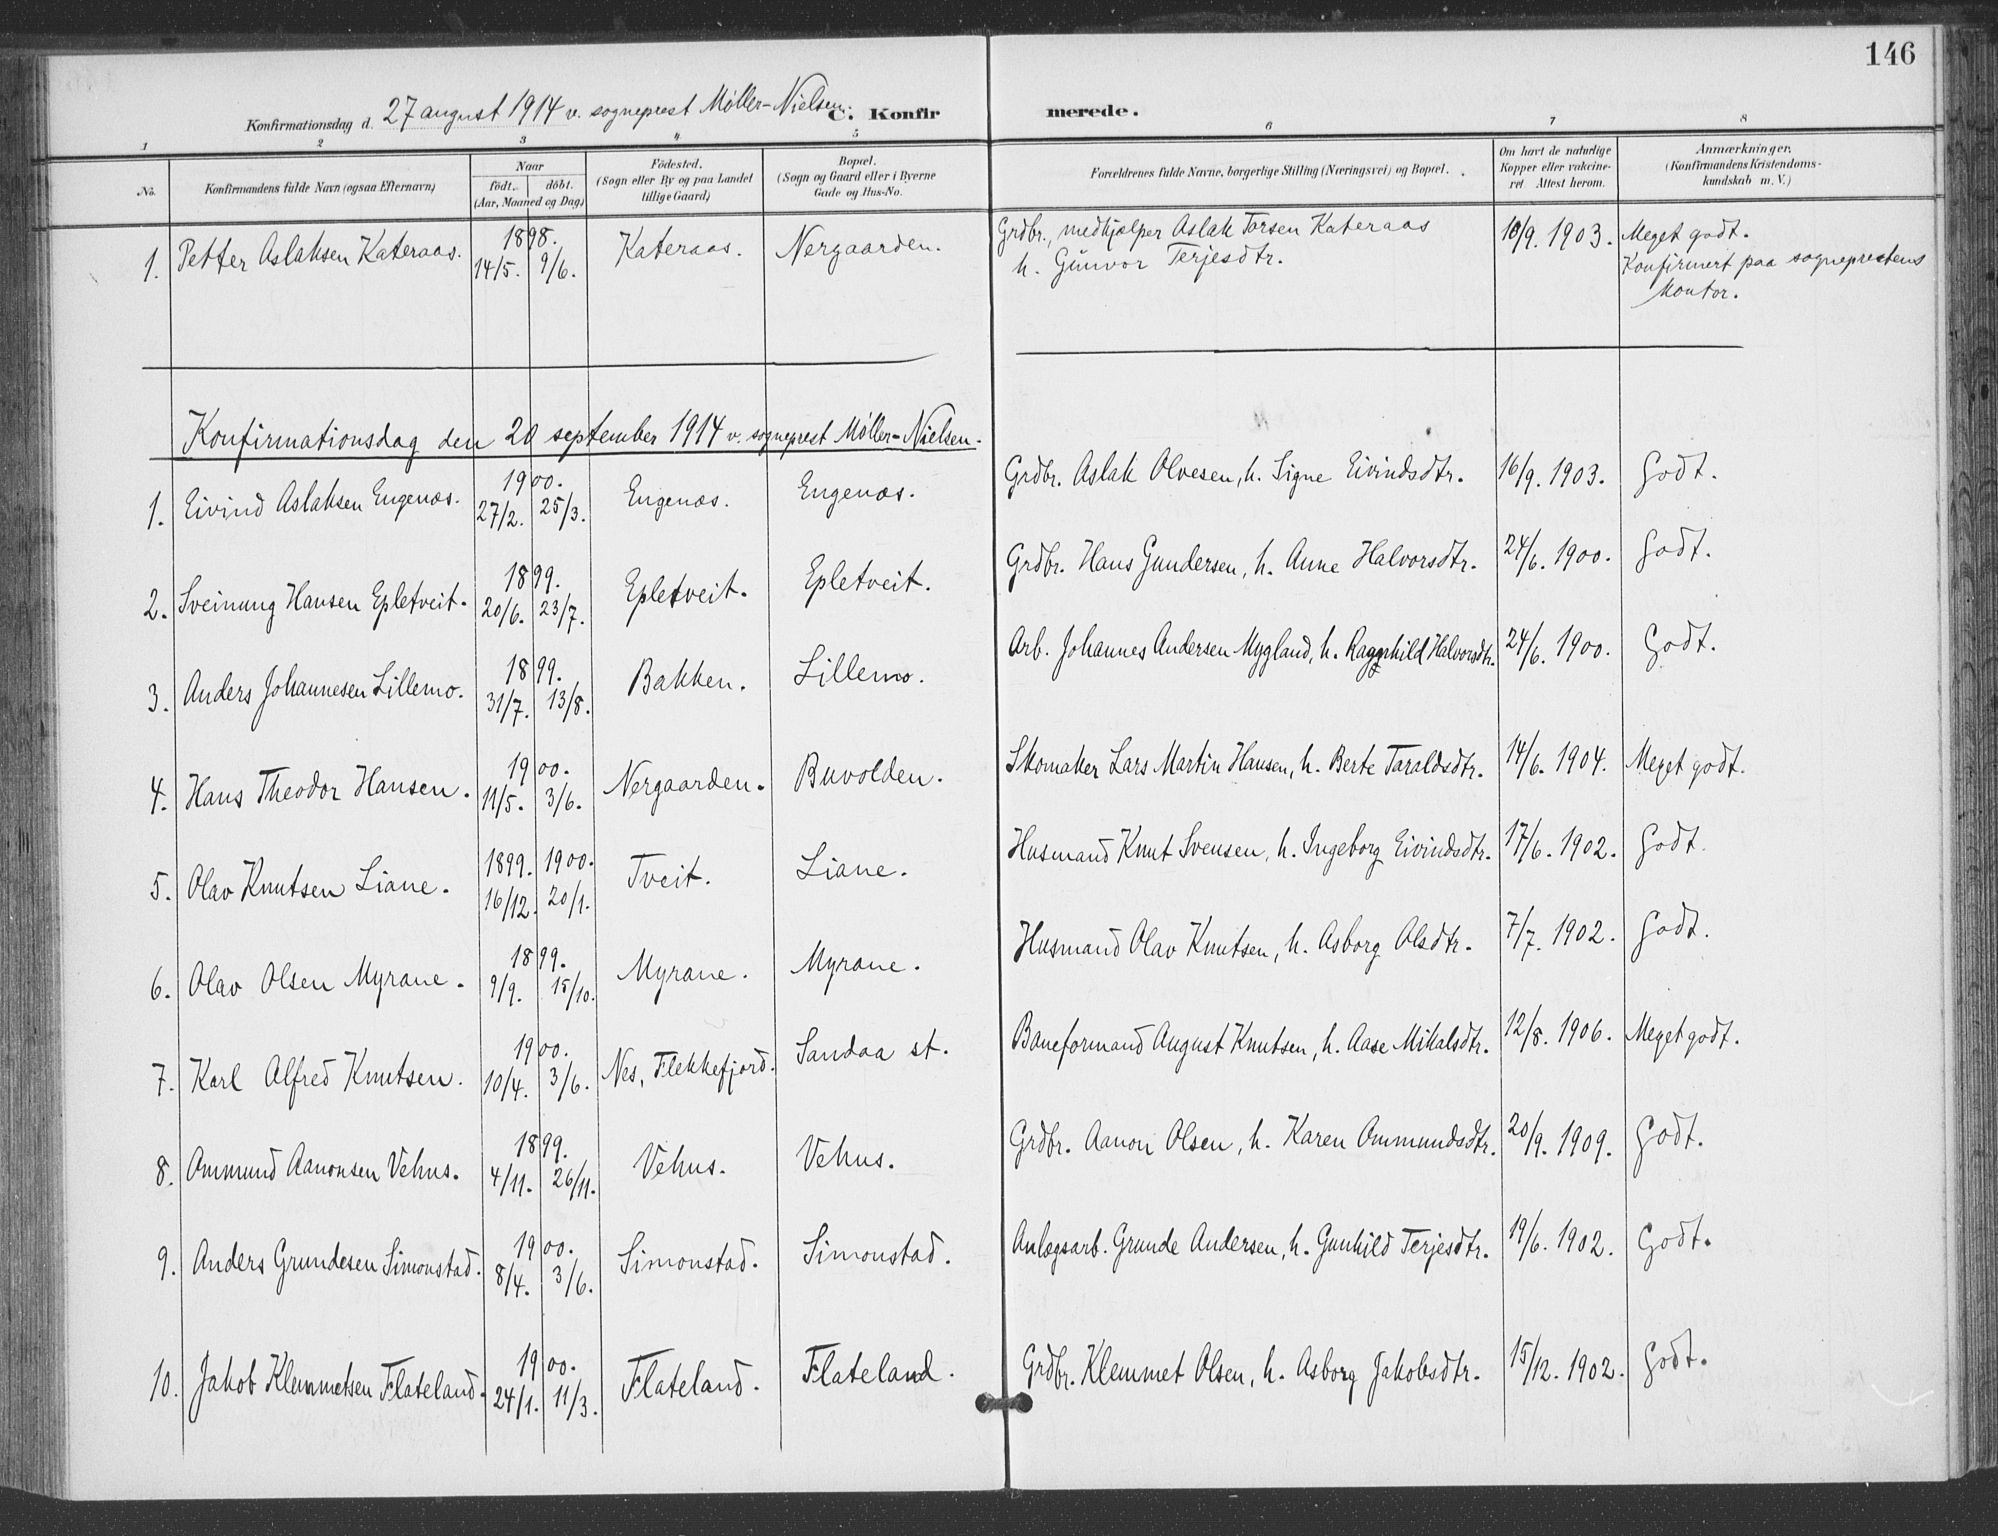 146
Konfirmationsdag d. 27 august 1914 v. sogneprest Møller-Nielsen. C. Konfirmerede.
1 2 3 4 5 6 7 8
No. Konfirmandens fulde Navn (ogsaa Efternavn) Naar født. døbt. (Aar, Maaned og Dag) Födested. (Sogn eller By og paa Landet tillige Gaard) Bopæl. (Sogn og Gaard eller i Byerne Gade og Hus-No. Forældrenes fulde Navne, borgerlige Stilling (Næringsvei) og Bopæl. Om havt de naturlige Kopper eller vakcineret Attest herom. Anmærkninger. (Konfirmandens Kristendomskundskab m. V.)
1. Petter Aslaksen Kateraas. 1898. 14/5. 9/6. Kateraas. Nergaarden. Grdbr., medhjælper Aslak Torsen Kateraas h. Gunvor Terjesdtr. 10/9. 1903. Meget godt. Konfirmert paa sogneprestens kontor.
Konfirmationsdag den 20 september 1914 v. sogneprest Møller-Nielsen.
1. Eivind Aslaksen Engenæs. 1900. 27/2. 25/3. Engenæs. Engenæs. Grdbr. Aslak Olvesen, h. Signe Eivindsdtr. 16/9. 1903. Godt.
2. Sveinung Hansen Epletveit. 1899. 20/6. 23/7. Epletveit. Epletveit. Grdbr. Hans Gundersen, h. Anne Halvorsdtr. 24/6. 1900. Godt.
3. Anders Johannesen Lillemo. 1899. 31/7. 13/8. Bakken. Lillemo. Arb. Johannes Andersen Mygland, h. Ragnhild Halvorsdtr. 24/6. 1900. Godt.
4. Hans Theodor Hansen. 1900. 11/5. 3/6. Nergaarden. Buvolden. Skomaker Lars Martin Hansen, h. Berte Taraldsdtr. 14/6. 1904. Meget godt.
5. Olav Knutsen Liane. 1899. 1900. 16/12. 20/1. Tveit. Liane. Husmand Knut Svensen, h. Ingeborg Eivindsdtr. 17/6. 1902. Godt.
6. Olav Olsen Myrane. 1899. 9/9. 15/10. Myrane. Myrane. Husmand Olav Knutsen, h. Asborg Olsdtr. 7/7. 1902. Godt.
7. Karl Alfred Knutsen. 1900. 10/4. 3/6. Nes, Flekkefjord. Sandaa st. Baneformand August Knutsen, h. Aase Mikalsdtr. 12/8. 1906. Meget godt.
8. Ommund Aanonsen Vehus. 1899. 4/11. 26/11. Vehus. Vehus. Grdbr. Aanon Olsen, h. Karen Ommundsdtr. 20/9. 1909. Godt.
9. Anders Grundesen Simonstad. 1900. 8/4. 3/6. Simonstad. Simonstad. Anlægsarb. Grunde Andersen, h. Gunhild Terjesdtr. 19/6. 1902. Godt.
10. Jakob Klemmetsen Flateland. 1900. 24/1. 11/3. Flateland. Flateland. Grdbr. Klemmet Olsen, h. Asborg Jakobsdtr. 15/12. 1902. Godt.